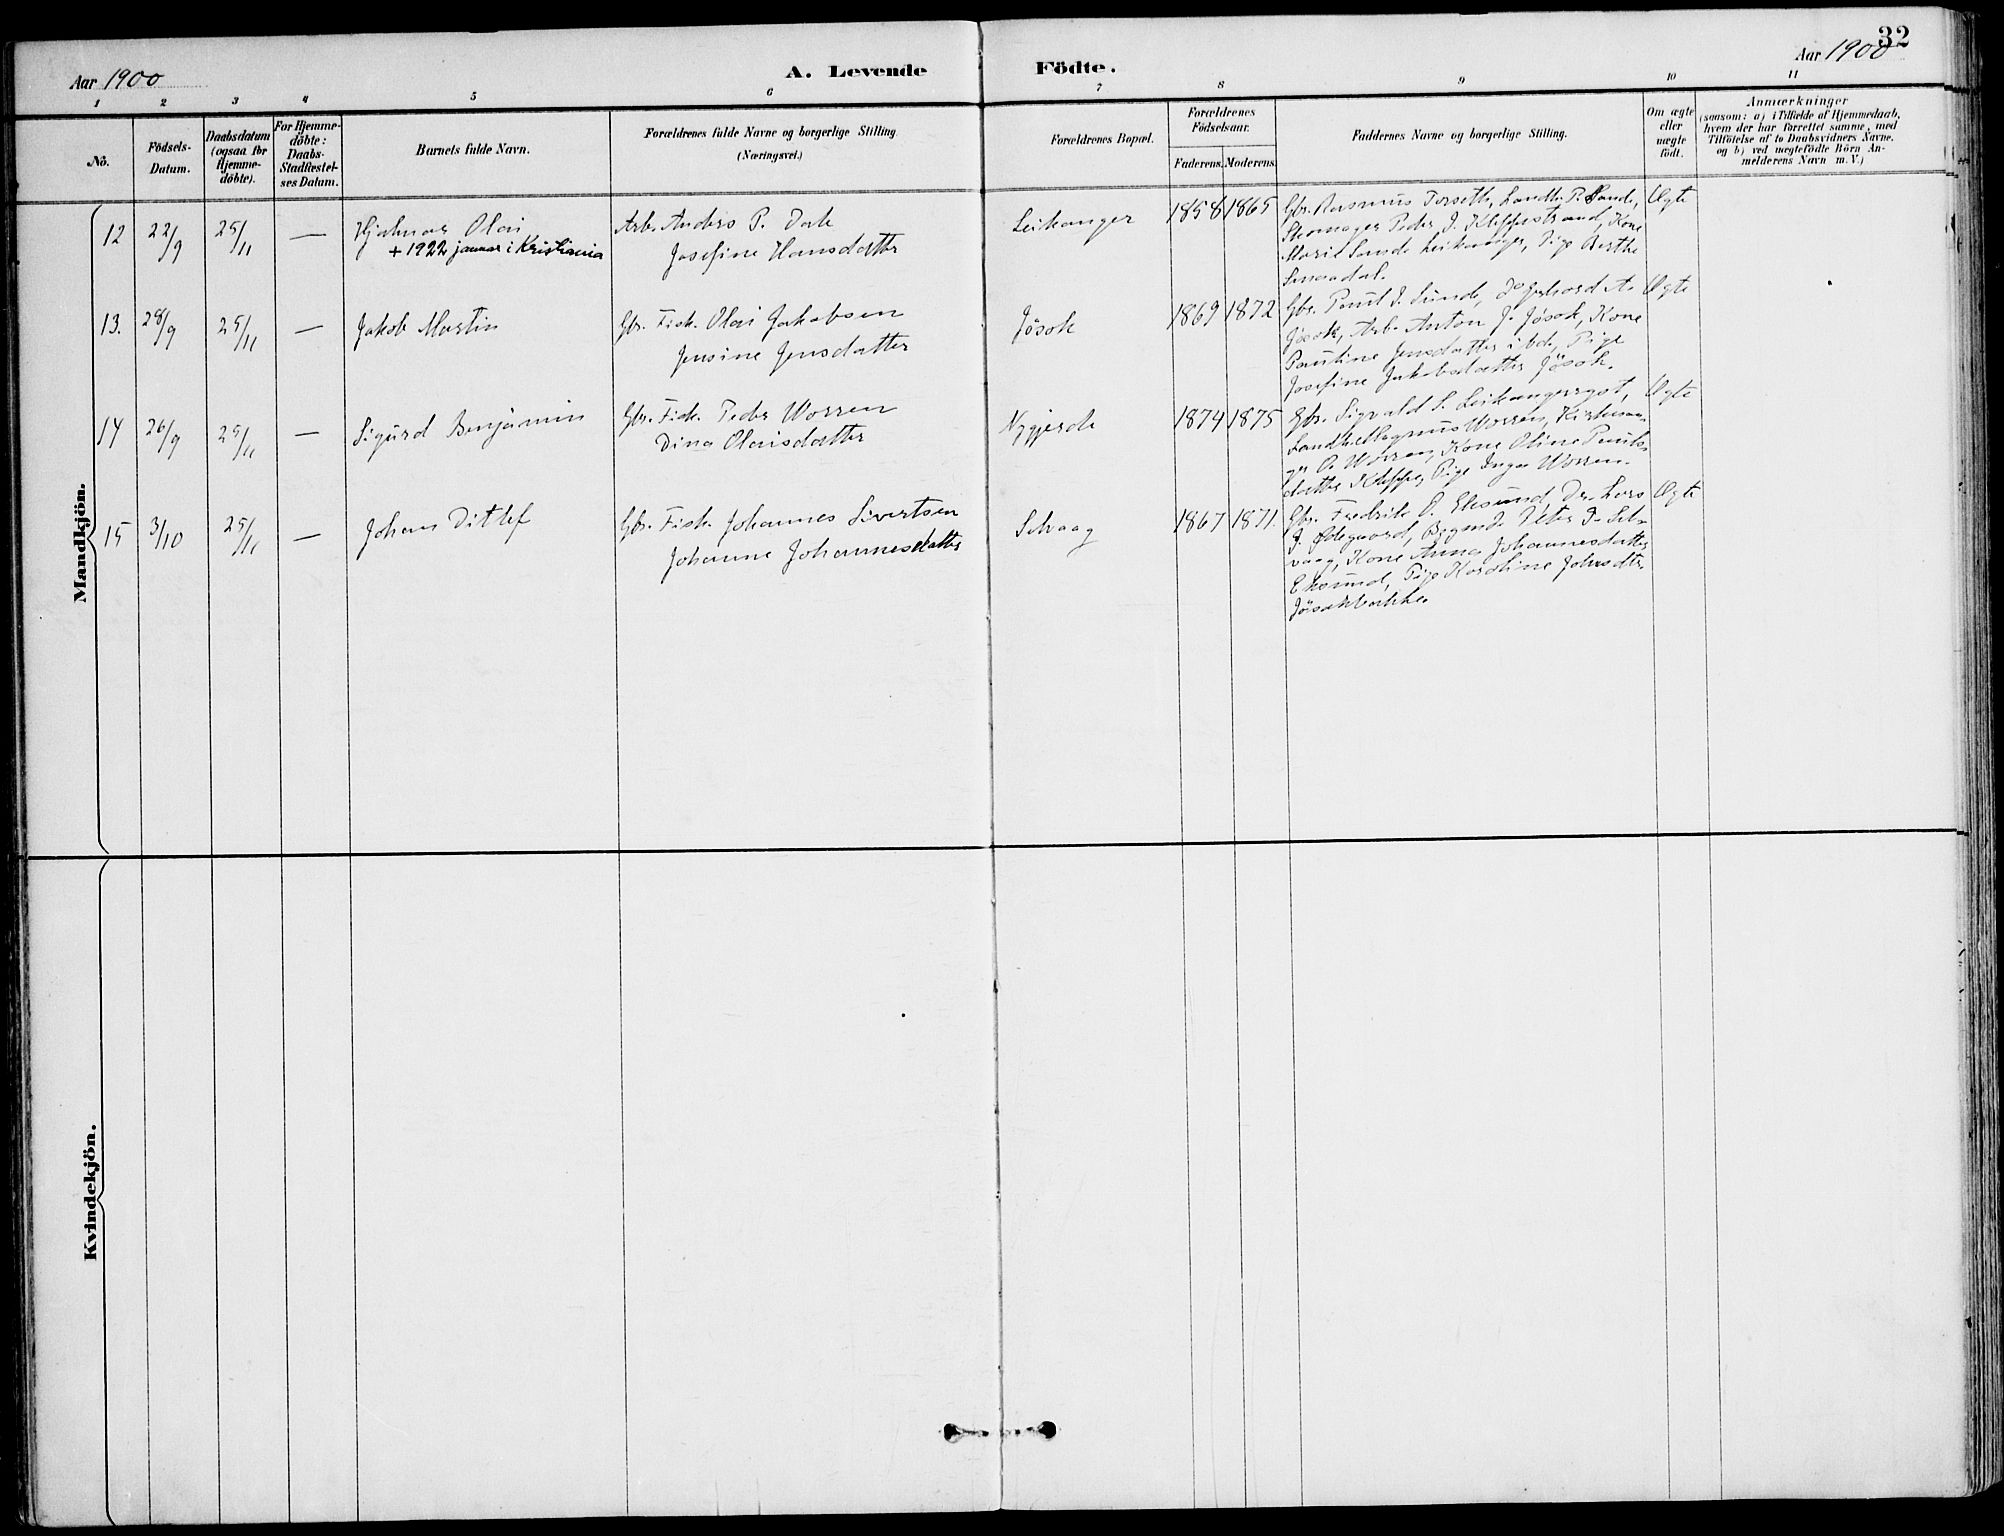 32
Aar 1900
A. Levende Födte.
Aar 1900
1 2 3 4 5 6 7 8 9 10 11
No.
Födsels-
Datum.
Daabsdatum
(ogsaa for
Hjemme-
döbte).
For Hjemme-
döbte:
Daabs-
Stadfæstel-
ses Datum.
Barnets fulde Navn.
Forældrenes fulde Navne og borgerlige Stilling
(Næringsvei.)
Forældrenes Bopæl.
Forældrenes
Födselsaar.
Faderens. Moderens.
Faddernes Navne og borgerlige Stilling.
Om ægte
eller
uægte
födt.
Anmærkninger
(saasom: a) i Tilfælde af Hjemmedaab,
hvem der har forrettet samme, med
Tilföielse af to Daabsvidners Navne,
og b) ved uægtefödte Börn An-
melderens Navn m. V.)
Mandkjön.
12 22/9 25/11 — Hjalmar Olai
+ 1922 januar i Kristiania
Arb. Anders P. Dale
Josefine Hansdatter
Leikanger 1858 1865
Gbr. Rasmus Torseth, Landh. P. Sande,
Skomager Peder J. Kleppestrand, Kone
Marie Sande Leikanger, Pige Berthe
Smaadal.
Ægte
13. 28/9 25/11 — Jakob Martin
Gbr. Fisk. Olai Jakobsen
Jensine Jensdatter
Jösok 1869 1872
Gbr. Paul J. Sunde, Do Gerhard A.
Jösok, Arb. Anton J. Jösok, Kone
Pauline Jensdatter ibd., Pige
Josefine Jakobsdatter Jösok.
Ægte
14 26/9 25/11 — Sigurd Benjamin
Gbr. Fisk. Peder Worren
Dina Olaisdatter
Nygjerde 1874 1875
Gbr. Sigvald S. Leikangerryst,
Landh. Magnus Worren, Kirkesan-
ger O. Worren, Kone Oline Pauls-
datter Kleppe, Pige Inga Worren.
Ægte
15 3/10 25/11 — Johan Ditlef
Gbr. Fisk. Johannes Sivertsen
Johanne Johannesdatter
Selvaag 1867 1871.
Gbr. Fredrik O. Eksund, Dr. Lars
J. Ødegaard, Bygmd. Peter J. Sel-
vaag, Kone Anna Johannesdatter
Eksund, Pige Karoline Johsdtr.
Jösokbakke.
Ægte
Kvindekjön.